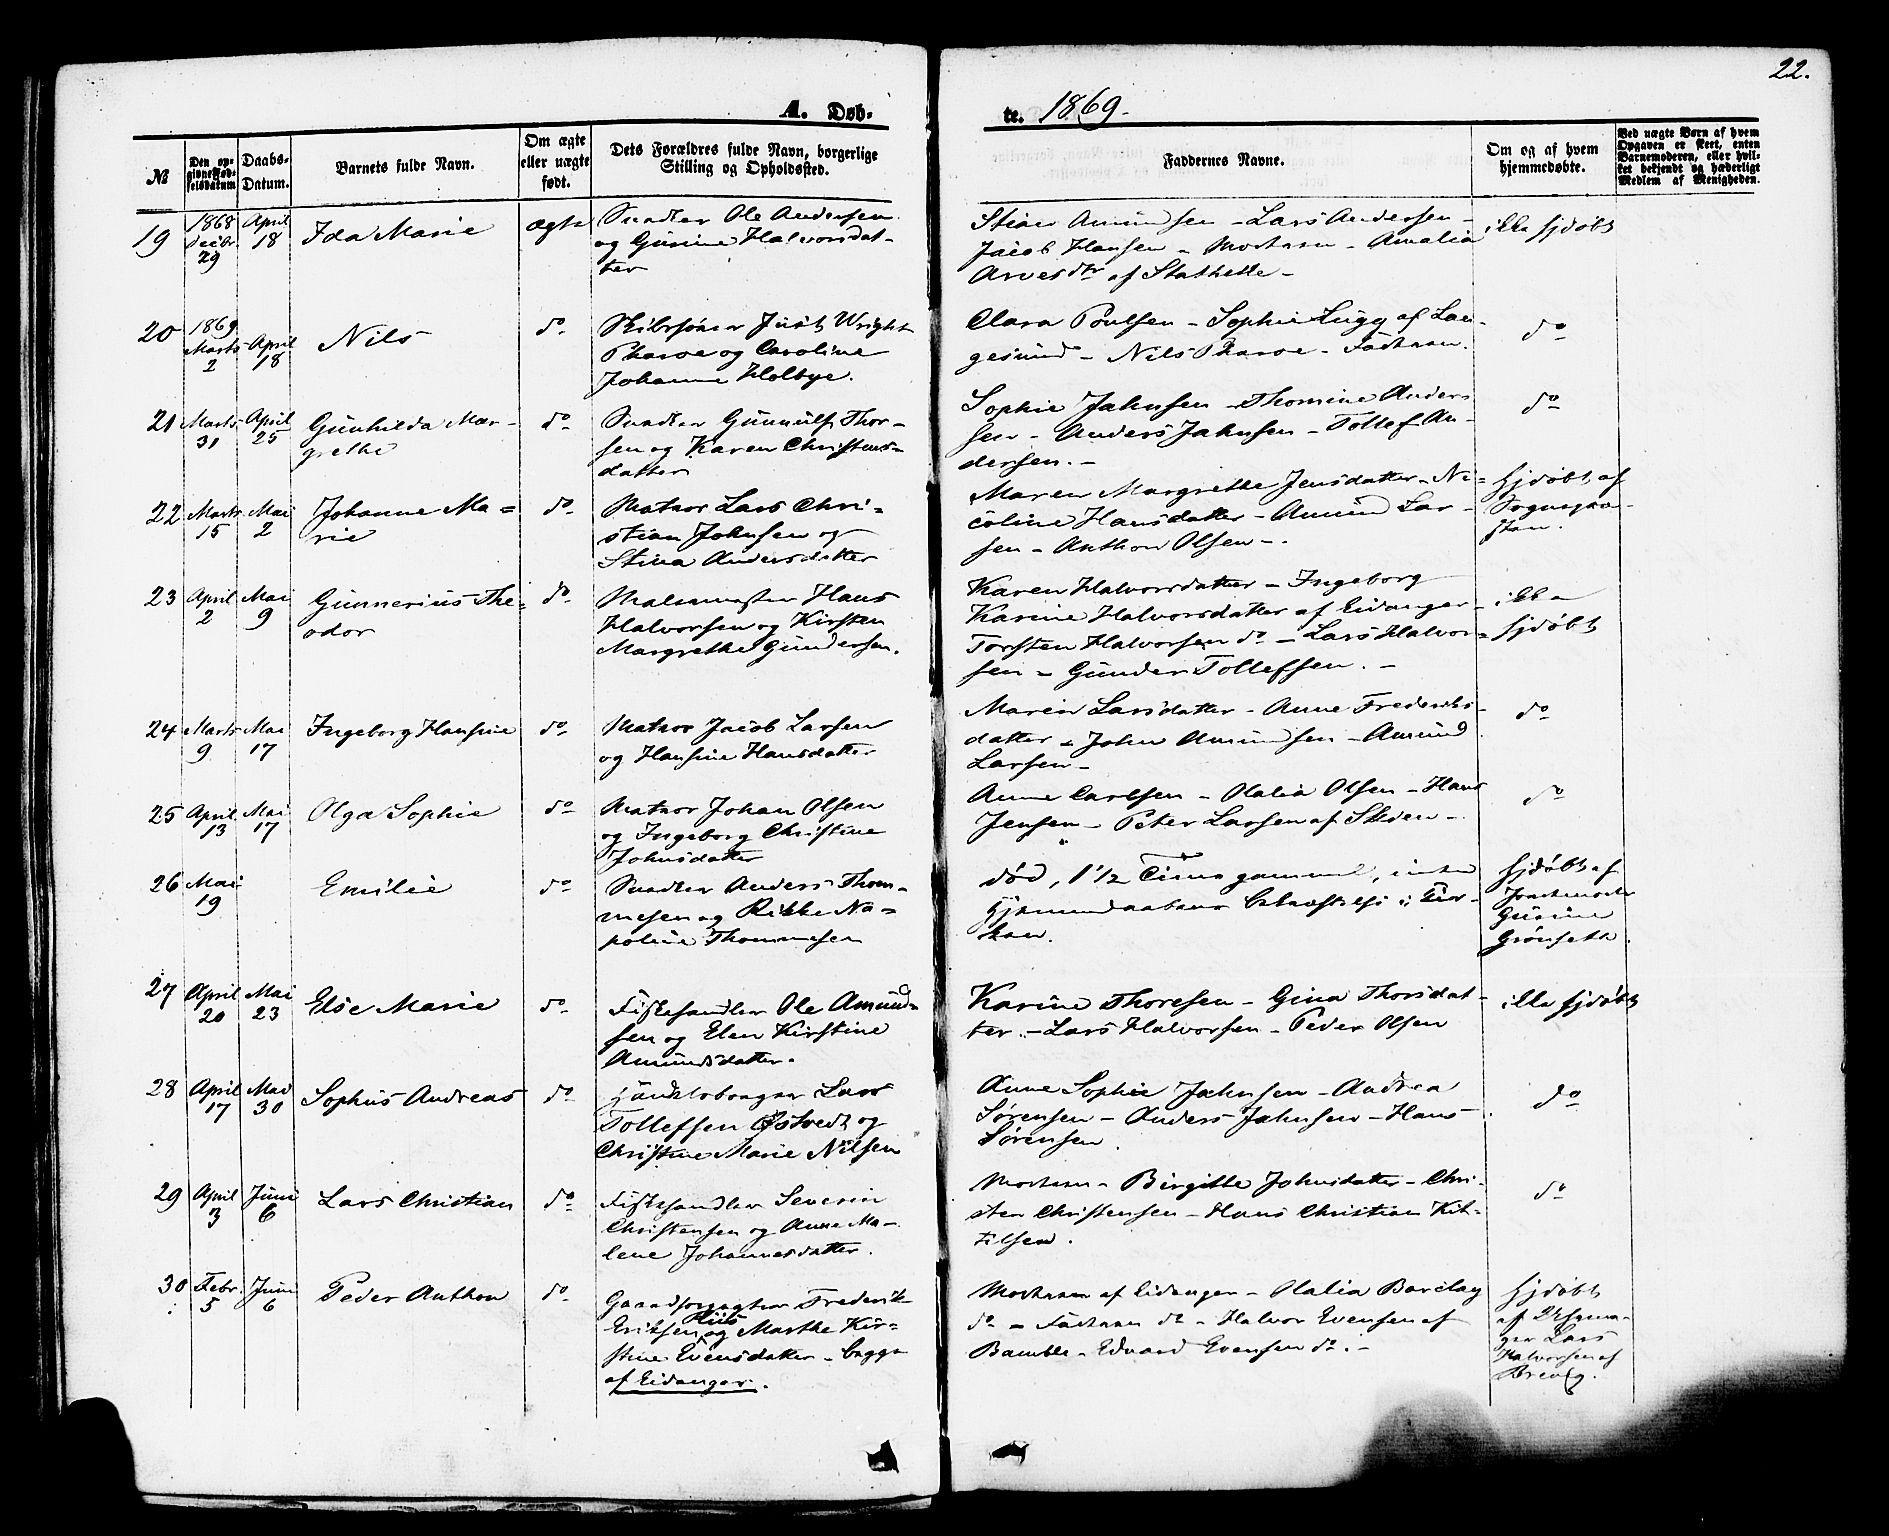 22.
A. Døb-
te. 1869.
№
Den op-
givne Fød-
selsdatum
Daabs-
Datum.
Barnets fulde Navn.
Om ægte
eller uægte
født.
Dets Forældres fulde Navn, borgerlige
Stilling og Opholdssted.
Faddernes Navne.
Om og af hvem
hjemmedøbte.
Ved uægte Børn af hvem
Opgaven er skeet, enten
Barnemoderen, eller hvil-
ket bekjendt og hæderligt
Medlem af Menigheden.
19
1868
Decbr.
29
April
18
Ida Marie
ægte
Snedker Ole Andersen
og Gusine Halvorsdat-
ter
Stian Amundsen - Lars Andersen -
Jacob Hansen - Modrsn - Amalia
Arvesdtr af Stathelle -
ikke hjdøbt
20
1869
Marts
2
April
18
Nils
do
Skibsfører Just Wright
Pharoe og Caroline
Johanne Holbye.
Clara Poulsen - Sophie Lugg af Lan-
gesund - Nils Pharoe - Fadrsn.
do
21
Marts
31
April
25
Gunhilda Mar-
grethe
do
Snedker Gunnulf Thor-
sen og Karen Christens-
datter
Sophie Jahnsen - Thomine Ander-
sen - Anders Jahnsen - Tollef An-
dersen. -
do
22
Marts
15
Mai
2
Johanne Ma-
rie
do
Matros Lars Chri-
stian Johnsen og
Stina Andersdatter
Maren Margrethe Jensdatter - Ni-
coline Hansdatter - Amund Lar-
sen - Anthon Olsen -.
Hjdøbt af
Sognepræ-
sten.
23
April
2
Mai
9
Gunnerius The-
odor
do
Malermester Hans
Halvorsen og Kirsten
Margrethe Gundersen.
Karen Halvorsdatter - Ingeborg
Karine Halvorsdatter af Eidanger -
Torsten Halvorsen do - Lars Halvor-
sen - Gunder Tollefsen. -
ikke
hjdøbt
24
Marts
9
Mai
17
Ingeborg Hansine
do
Matros Jacob Larsen
og Hansine Hansdatter
Maren Larsdatter - Anne Frederiks-
datter - John Amundsen - Amund
Larsen -
do
25
April
13
Mai
17
Olga Sophie
do
Matros Johan Olsen
og Ingeborg Christine
Johnsdatter
Anne Carlsen - Olalia Olsen - Hans
Jensen - Peter Larsen af Skien -
do
26
Mai
19
Emilie
do
Snedker Anders Thom-
mesen og Rikke Na-
poline Thommesen
død, 1½ Time gammel, inden
Hjemmedaabens Bekræftelse i Kir-
ken.
Hjdøbt af
Jordmoder
Gusine
Grønseth.
27
April
20
Mai
23
Else Marie
do
Fiskehandler Ole Amund-
sen og Elen Kirstine
Amundsdatter.
Karine Thoresen - Gina Thorsdat-
ter. - Lars Halvorsen - Peder Olsen
ikke hjdøbt
28
April
17
Mai
30
Sophus Andreas
do
Handelsborger Lars
Tollefsen Østvedt og
Christine Marie Nilsen
Anne Sophie Jahnsen - Andrea
Sørensen - Anders Jahnsen - Hans
Sørensen.
do
29
April
3
Juni
6
Lars Christian
do
Fiskehandler Severin
Christensen og Anne Ma-
lene Johannesdatter.
Modrsn - Birgitte Johnsdatter - Chri-
sten Christensen - Hans Christian Kit-
tilsen.
do
30
Febr.
5
Juni
6
Peder Anthon
do
Gaardforpagter Frederik
Eriksen Riis og Marthe Kir-
stine Evensdatter - begge
af Eidanger.
Modrsn af Eidanger - Olalia Barclay
do - Fadrsn do - Halvor Evensen af
Bamble - Edvard Evensen do. -
Hjdøbt
af
Lars
Halvorsen af
Brevig.